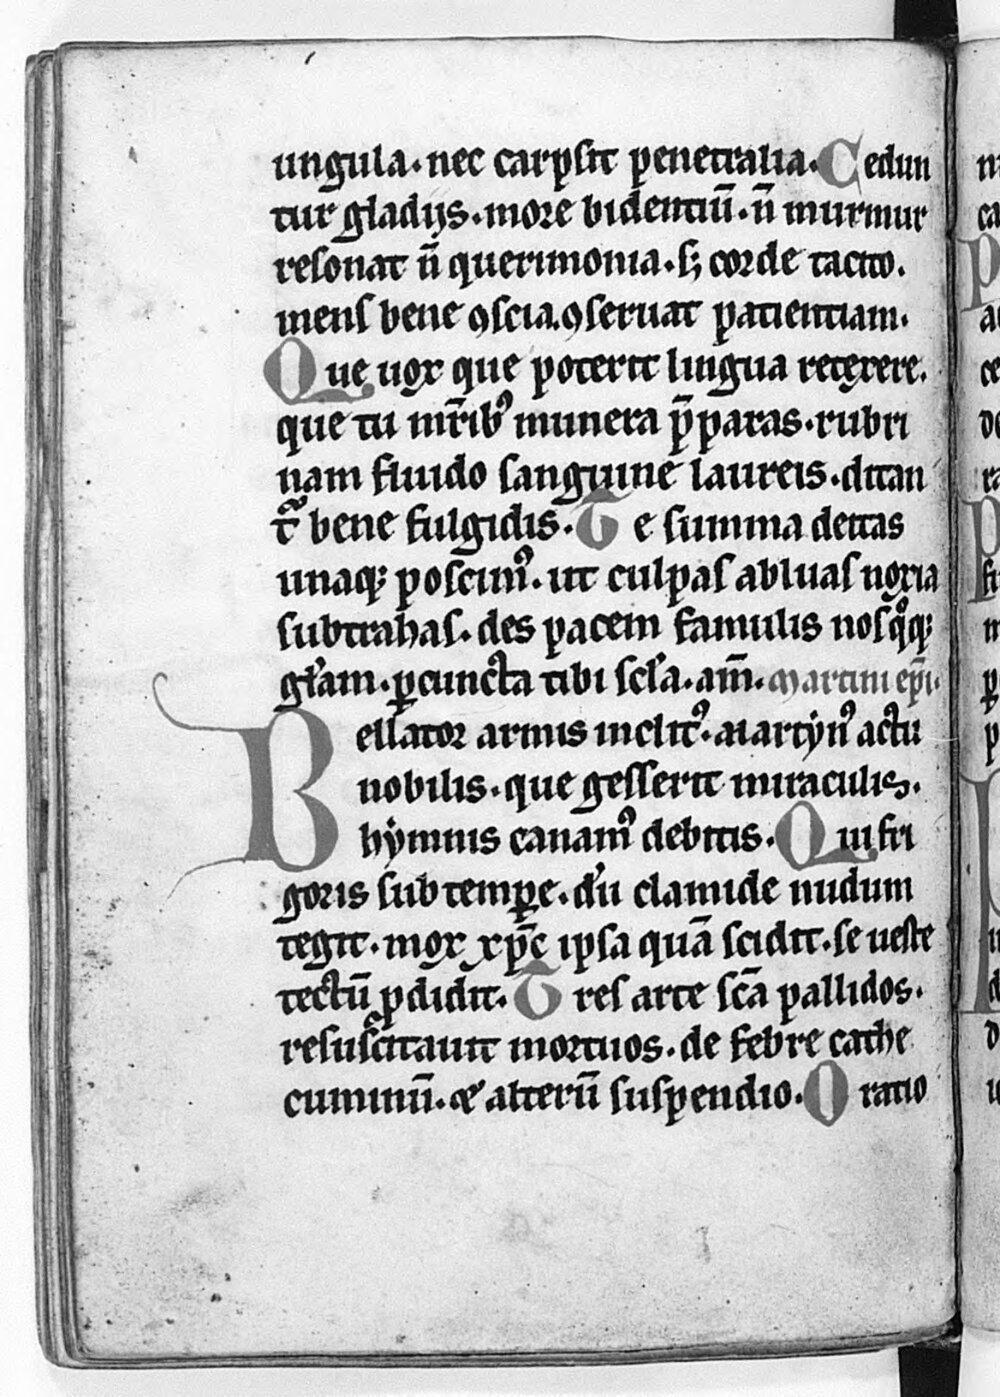 ungula · nec carpsit penetralia · Cedun
tur gladijs · more bidentiū · n̄ murmur
resonat n̄ querimonia · sꝫ corde tacito .
mens bene ꝯscia . ꝯseruat patientiam .
Que uox que poterit lingua retexere .
que tu mr̄ibꝰ munera p̄paras · rubri
nam fluido sanguine laureis · ditan
t᷑ bene fulgidis . Te summa deitas
unaqꝫ poscimꝰ · ut culpas abluas noxia
subtrahas · des pacem famulis nosqͦqꝫ
gl̄am · ꝑ cuncta tibi scl̄a · am̄ . Martini ep̄i .
Bellator armis inclitꝰ · Martynꝰ actu
nobilis · que gesserit miraculis .
hymnis canamꝰ debitis . Qui fri
goris sub tempꝑe · dū clamide nudum
tegit · mox xp̄c ipsa quā scidit · se ueste
tectū ꝓdidit . Tres arte scā pallidos .
resuscitauit mortuos · de febre cathe
cuminū · et alterū suspendio . Oratio